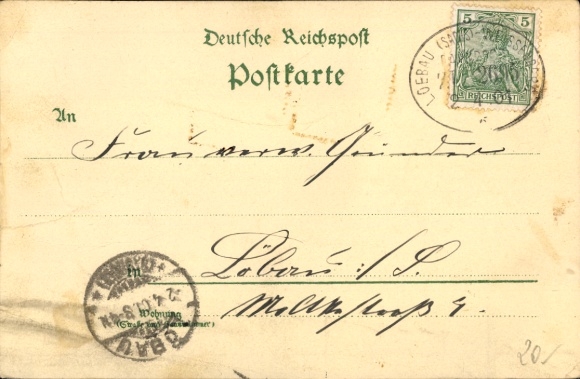 Deutsche Reichspost
Postkarte
5 5
REICHSPOST
LOEBAU (SACHS)
An
Frau verw. Gründer
in
Löbau i/S.
Wohnung
(Straße und Hausnummer)
Moltkestraß 4.
LÖBAU
2.4.01.8-9N
20/